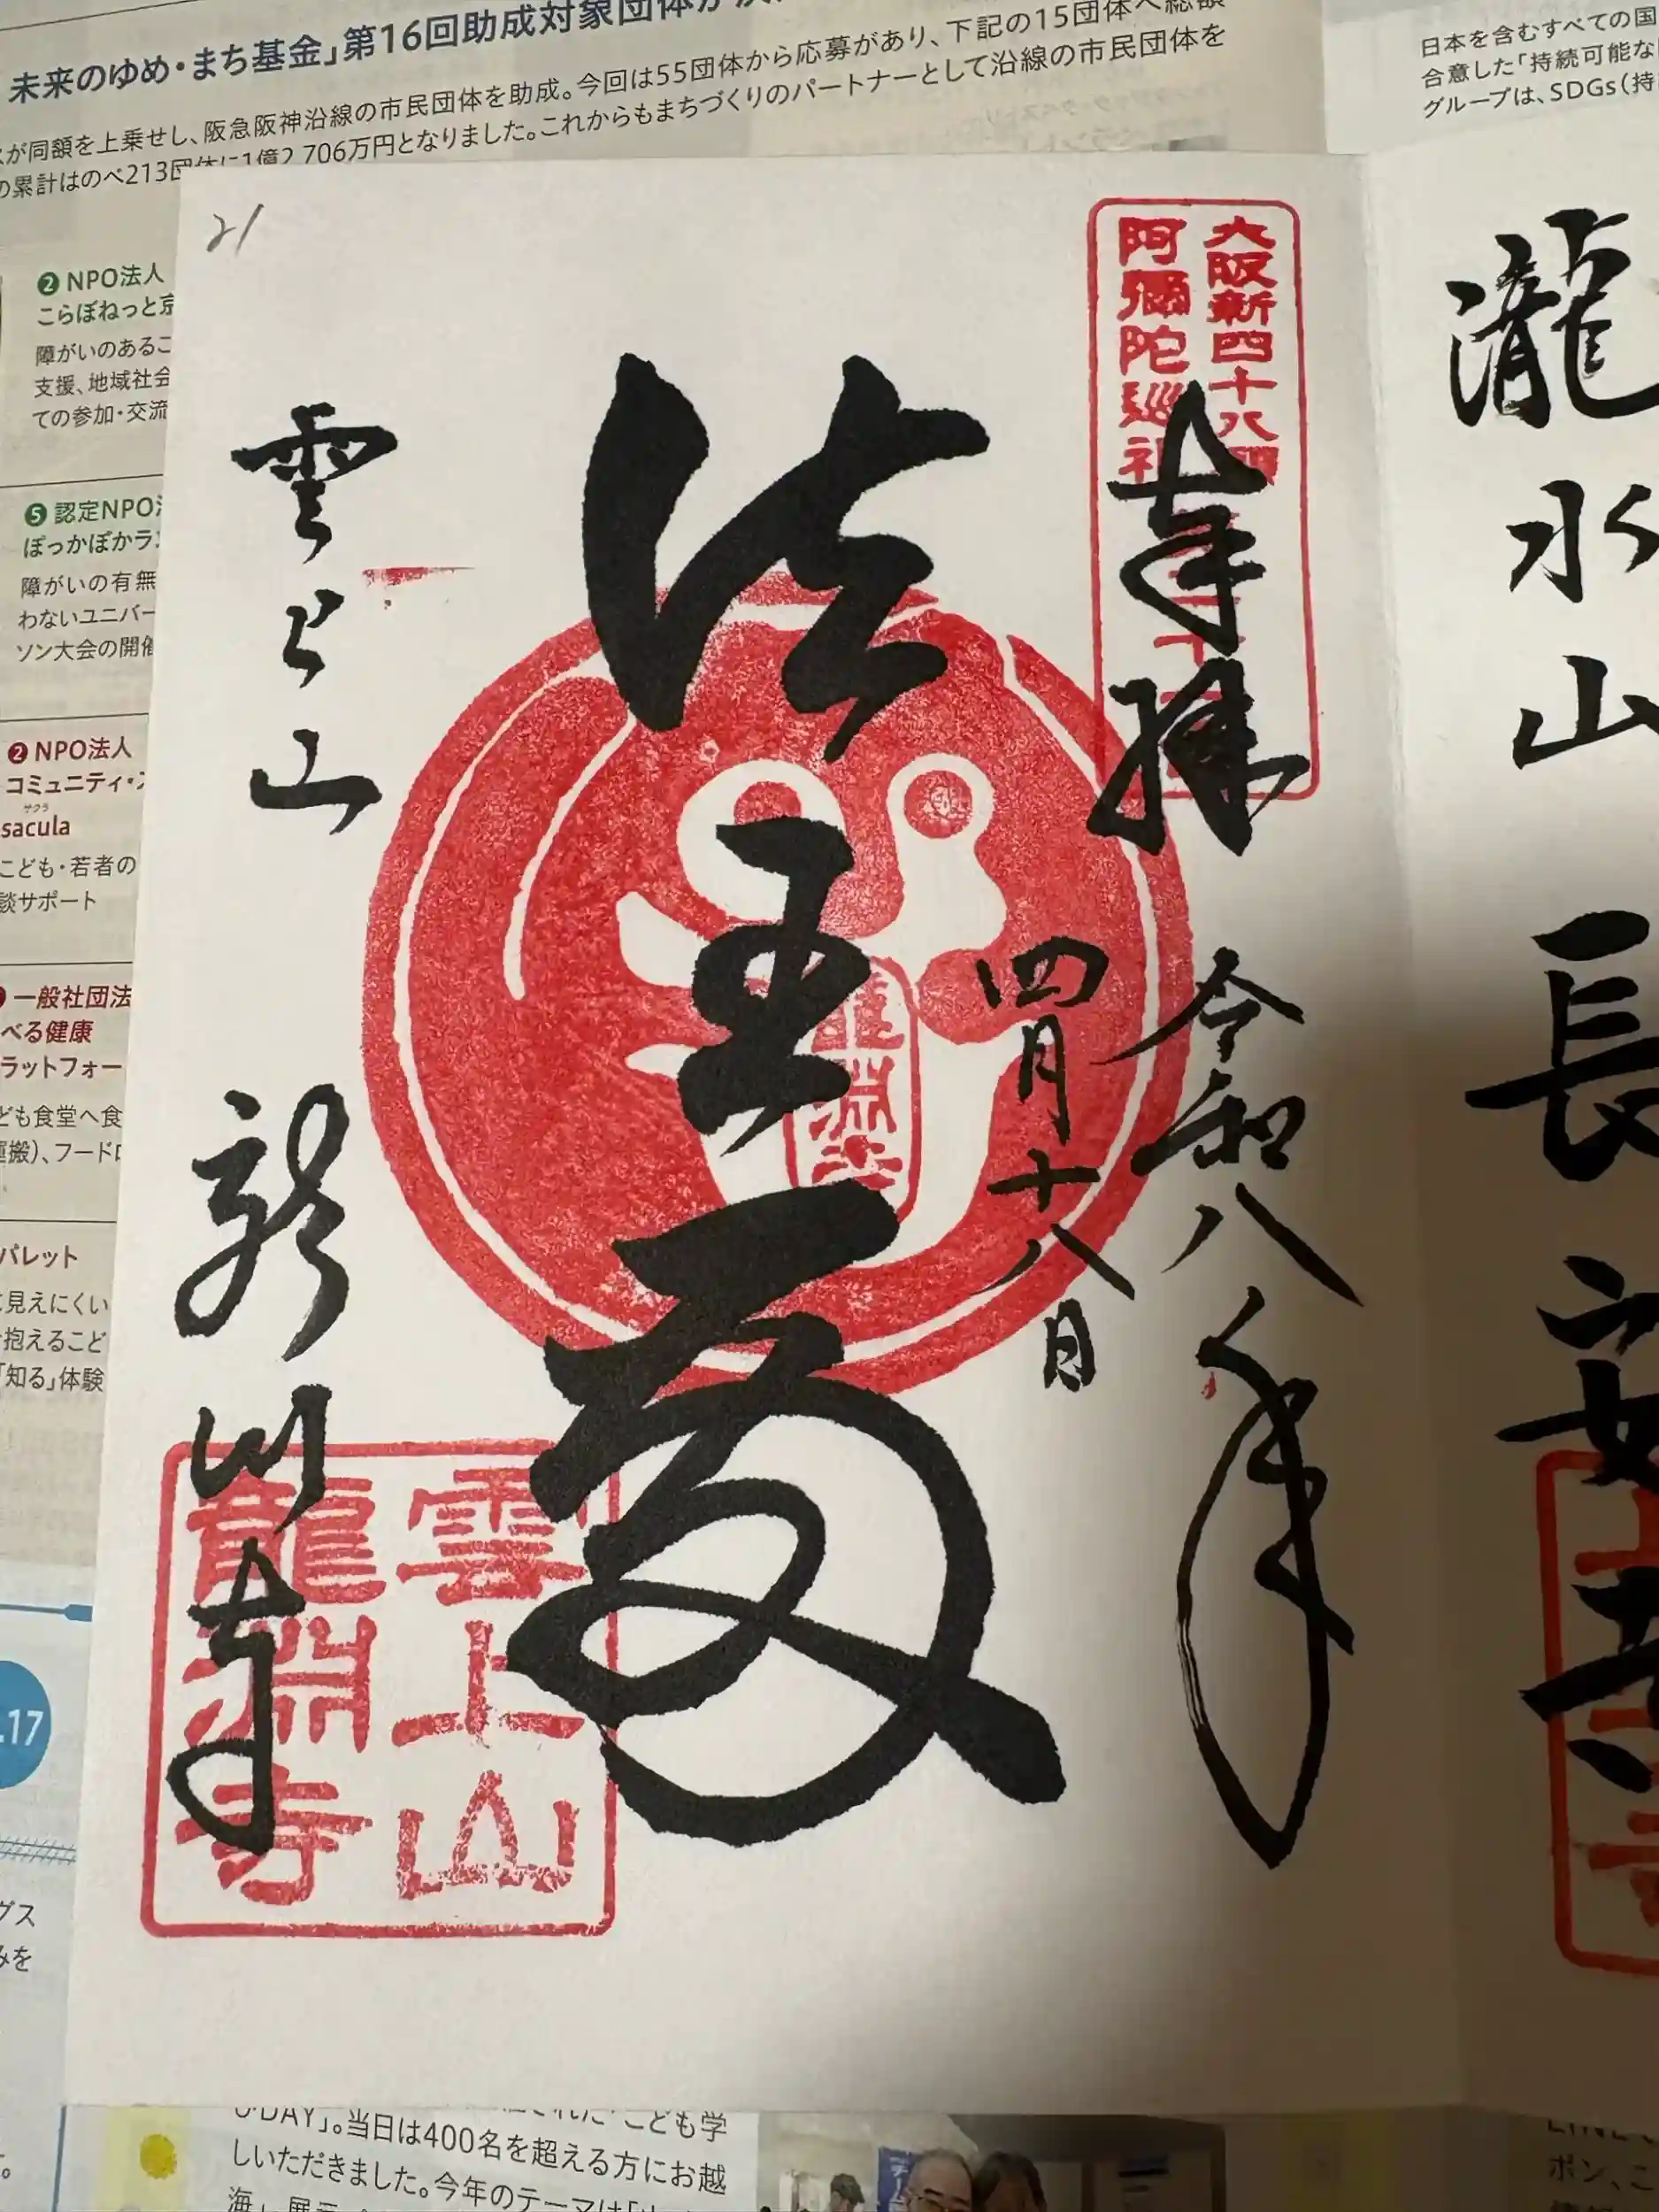 未来のゆめ・まち基金」第16回助成対象団体が
が同額を上乗せし、阪急阪神沿線の市民団体を助成。今回は55団体から応募があり、下記の15団体へ総額
の累計はのべ213団体に1億2,706万円となりました。これからもまちづくりのパートナーとして沿線の市民団体を
日本を含むすべての国
合意した「持続可能な
グループは、SDGs(持
21
大阪新四十八願
阿彌陀巡礼
奉拝
令和八年
四月十八日
法王殿
雲上山
龍渕寺
龍淵寺
雲上山
龍淵寺
瀧水山
長安寺
❷ NPO法人
こらぼねっと京
障がいのあるこ
支援、地域社会
ての参加・交流
❺ 認定NPO法
ぽっかぽかラン
障がいの有無
わないユニバー
ソン大会の開催
❷ NPO法人
コミュニティ・ス
サクラ
sacula
こども・若者の
談サポート
一般社団法
べる健康
ラットフォー
ども食堂へ食
運搬)、フードロ
パレット
に見えにくい
抱えるこど
「知る」体験
.17
グス
みを
DAY」。当日は400名を超える方にお越
しいただきました。今年のテーマは
ポン、こ